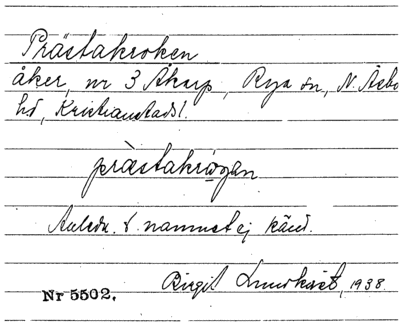 Prästakroken
åker, nr 3 Åkarp, Rya sn, N. Åsbo
hd, Kristianstadsl.
prästakrωgan
Anledn. t. namnet ej känd.
Birgit Lundkvist, 1938
Nr 5502.